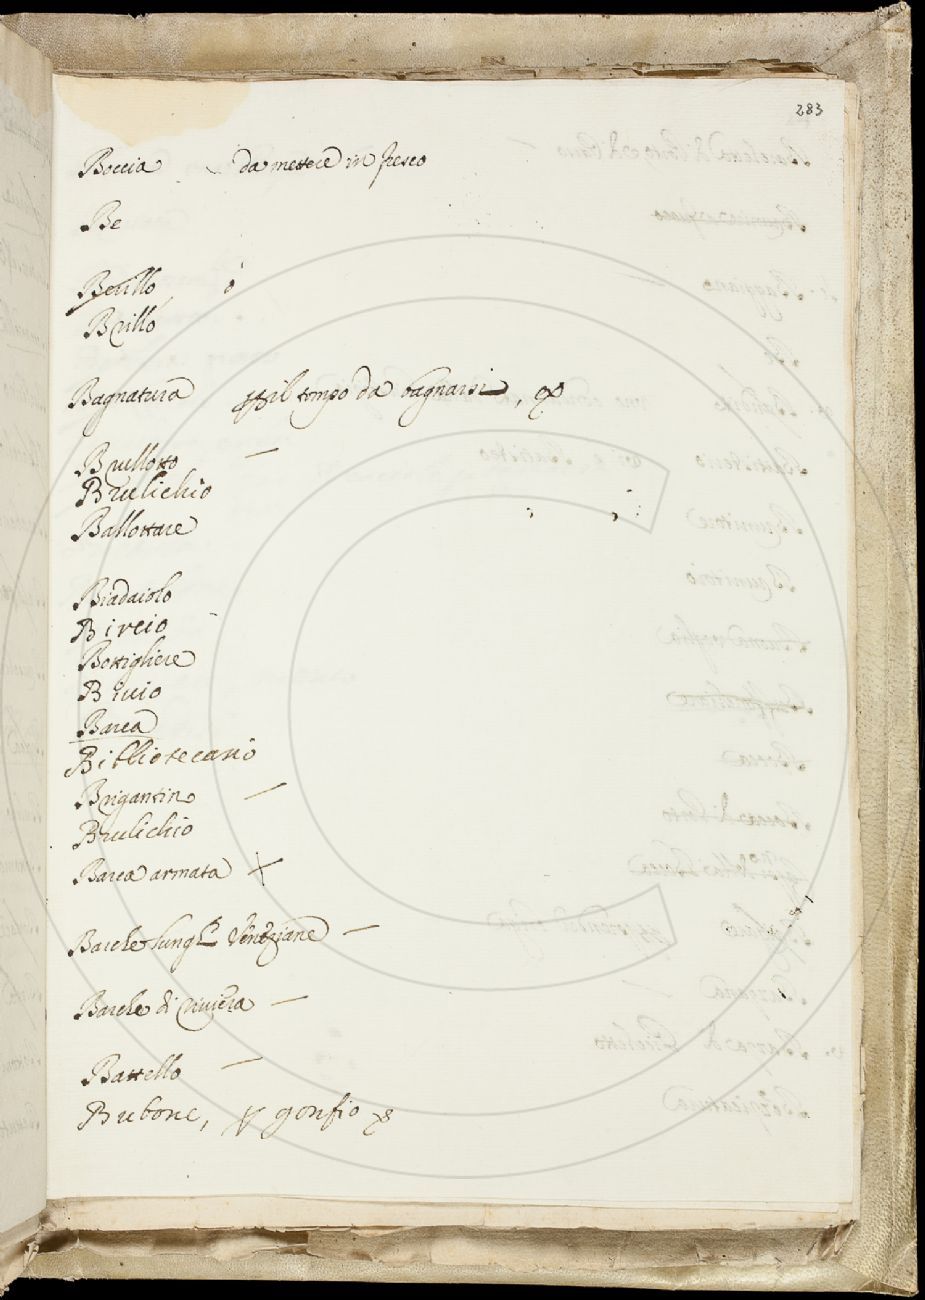 283
Boccia da mettere in fresco
Be
Berillo, ó
Brillo
Bagnatura il tempo da bagnarsi,
Brullotto —
Brulichio
Ballottare
Biadaiolo
Bireio
Bottigliere
Bivio
Barca
Bibliotecario
Brigantino —
Brulichio
Barca armata X
Barche lunghe Veneziane —
Barche di riviera —
Battello —
Bubone, gonfio